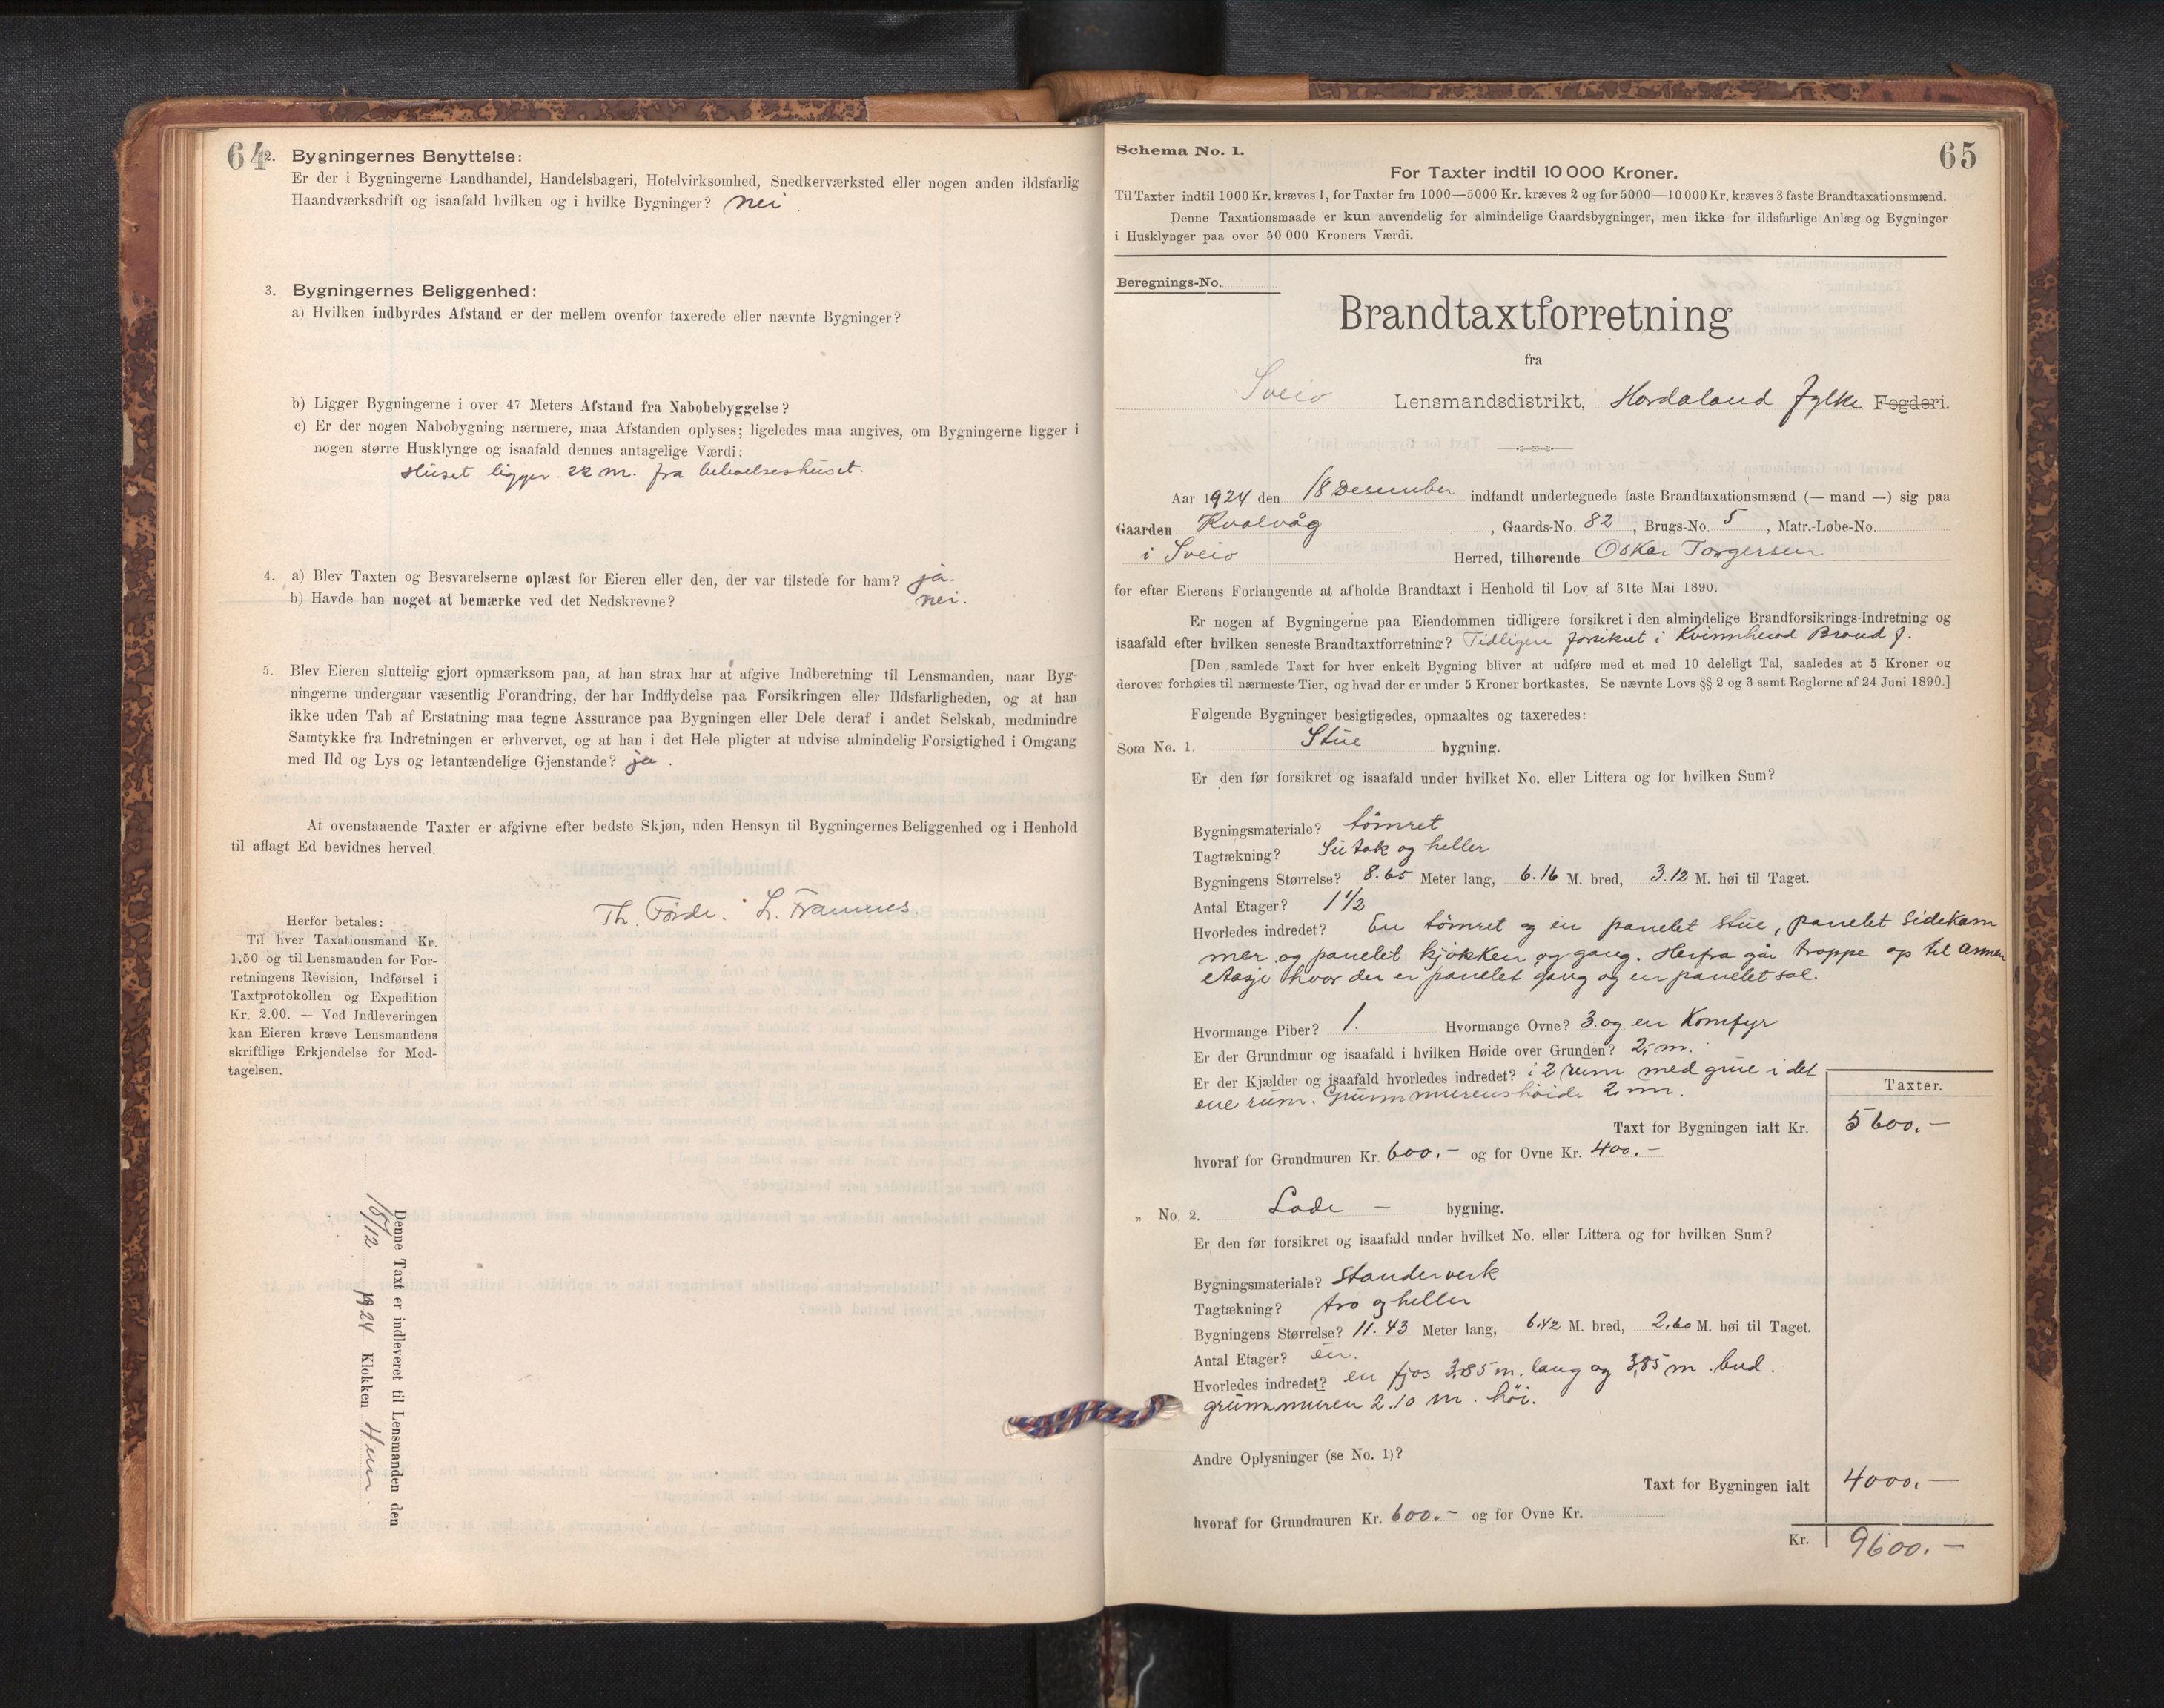 64
2. Bygningernes Benyttelse:
Er der i Bygningerne Landhandel, Handelsbageri, Hotelvirksomhed, Snedkerværksted eller nogen anden ildsfarlig
Haandværksdrift og isaafald hvilken og i hvilke Bygninger? nei.
3. Bygningernes Beliggenhed:
a) Hvilken indbyrdes Afstand er der mellem ovenfor taxerede eller nævnte Bygninger?
b) Ligger Bygningerne i over 47 Meters Afstand fra Nabobebyggelse?
c) Er der nogen Nabobygning nærmere, maa Afstanden oplyses; ligeledes maa angives, om Bygningerne ligger i
nogen større Husklynge og isaafald dennes antagelige Værdi:
Huset ligger 22 m. fra
4. a) Blev Taxten og Besvarelserne oplæst for Eieren eller den, der var tilstede for ham? ja.
b) Havde han noget at bemærke ved det Nedskrevne? nei.
5. Blev Eieren sluttelig gjort opmærksom paa, at han strax har at afgive Indberetning til Lensmanden, naar Byg-
ningerne undergaar væsentlig Forandring, der har Indflydelse paa Forsikringen eller Ildsfarligheden, og at han
ikke uden Tab af Erstatning maa tegne Assurance paa Bygningen eller Dele deraf i andet Selskab, medmindre
Samtykke fra Indretningen er erhvervet, og at han i det Hele pligter at udvise almindelig Forsigtighed i Omgang
med Ild og Lys og letantændelige Gjenstande? ja.
At ovenstaaende Taxter er afgivne efter bedste Skjøn, uden Hensyn til Bygningernes Beliggenhed og i Henhold
til aflagt Ed bevidnes herved.
Th. Førde. L.
Herfor betales:
Til hver Taxationsmand Kr.
1.50 og til Lensmanden for For-
retningens Revision, Indførsel i
Taxtprotokollen og Expedition
Kr. 2.00. — Ved Indleveringen
kan Eieren kræve Lensmandens
skriftlige Erkjendelse for Mod-
tagelsen.
Denne Taxt er indleveret til Lensmanden den
18/12 1924 Klokken
65
Schema No. 1.
For Taxter indtil 10 000 Kroner.
Til Taxter indtil 1000 Kr. kræves 1, for Taxter fra 1000—5000 Kr. kræves 2 og for 5000—10 000 Kr. kræves 3 faste Brandtaxationsmænd.
Denne Taxationsmaade er kun anvendelig for almindelige Gaardsbygninger, men ikke for ildsfarlige Anlæg og Bygninger
i Husklynger paa over 50 000 Kroners Værdi.
Beregnings-No.
Brandtaxtforretning
fra
Sveio Lensmandsdistrikt, Hordaland fylke Fogderi.
Aar 1924 den 18 Desember indfandt undertegnede faste Brandtaxationsmænd (— mand —) sig paa
Gaarden Kvalvåg, Gaards-No. 82, Brugs-No. 5, Matr.-Løbe-No.
i Sveio Herred, tilhørende Oskar Torgersen
for efter Eierens Forlangende at afholde Brandtaxt i Henhold til Lov af 31te Mai 1890.
Er nogen af Bygningerne paa Eiendommen tidligere forsikret i den almindelige Brandforsikrings-Indretning og
isaafald efter hvilken seneste Brandtaxtforretning? Tidligere forsikret i Kvinnherad Brand f.
[Den samlede Taxt for hver enkelt Bygning bliver at udføre med et med 10 deleligt Tal, saaledes at 5 Kroner og
derover forhøies til nærmeste Tier, og hvad der er under 5 Kroner bortkastes. Se nævnte Lovs §§ 2 og 3 samt Reglerne af 24 Juni 1890.]
Følgende Bygninger besigtigedes, opmaaltes og taxeredes:
Som No. 1. Stue bygning.
Er den før forsikret og isaafald under hvilket No. eller Littera og for hvilken Sum?
Bygningsmateriale? tømret
Tagtækning? Sutak og heller
Bygningens Størrelse? 8.65 Meter lang, 6.16 M. bred, 3.12 M. høi til Taget.
Antal Etager? 1 1/2
Hvorledes indredet? En tømret og en panelet stue, panelet sidekam
mer og panelet kjøkken og gang. Herfra går trappe op til annen
etasje hvor der er panelet gang og en panelet sal.
Hvormange Piber? 1. Hvormange Ovne? 3 og en Komfyr
Er der Grundmur og isaafald i hvilken Høide over Grunden? 2,- m.
Er der Kjælder og isaafald hvorledes indredet? i 2 rum med grue i det
ene rum. Grunnmurens høide 2 m.
Taxter.
Taxt for Bygningen ialt Kr. 5600.—
hvoraf for Grundmuren Kr. 600.— og for Ovne Kr. 400.—
„ No. 2. Lade — bygning.
Er den før forsikret og isaafald under hvilket No. eller Littera og for hvilken Sum?
Bygningsmateriale? standerverk
Tagtækning? tro og heller
Bygningens Størrelse? 11.43 Meter lang, 6.42 M. bred, 2.60 M. høi til Taget.
Antal Etager? en.
Hvorledes indredet? en fjos 3.85 m. lang og 3,85 m. bred.
grunnmuren 2.10 m. høi.
Andre Oplysninger (se No. 1)?
Taxt for Bygningen ialt 4000.—
hvoraf for Grundmuren Kr. 600.— og for Ovne Kr.
Kr. 9600.—